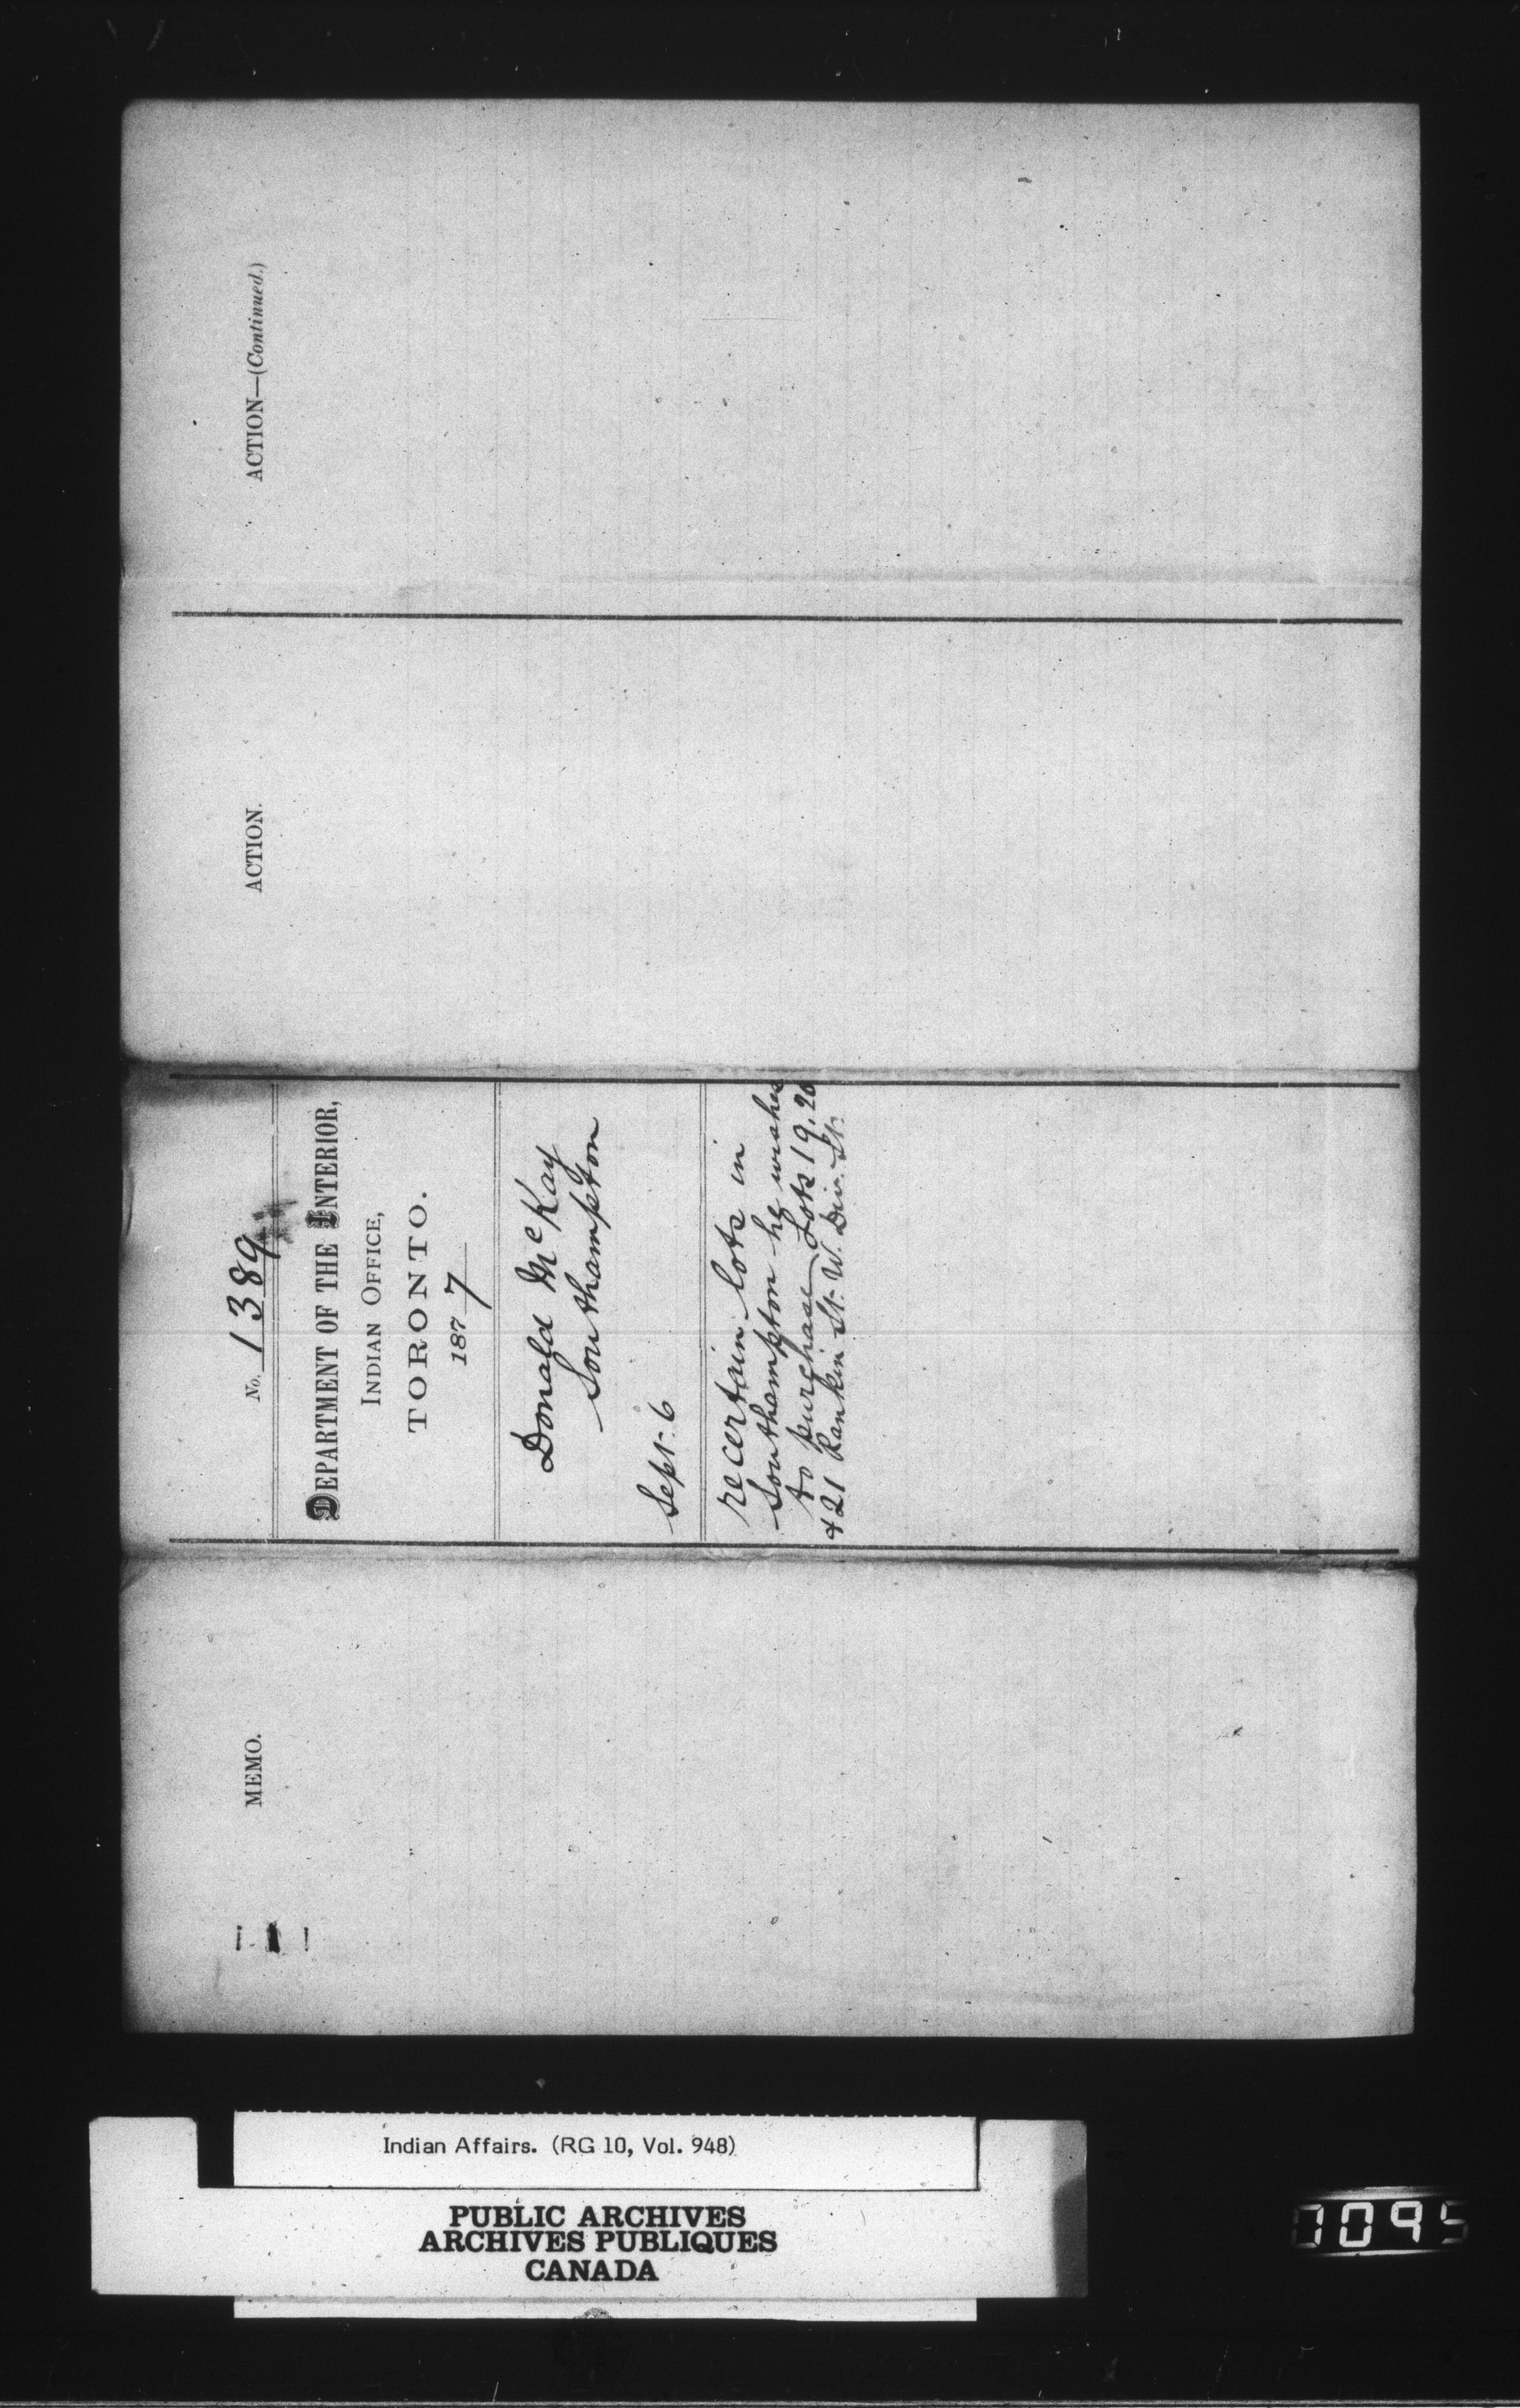 ACTION—(Continued.)
ACTION.
No. 1389
DEPARTMENT OF THE INTERIOR,
INDIAN OFFICE,
TORONTO.
1877
Donald McKay
Southampton
Sept. 6
re certain lots in
Southampton he wishes
to purchase Lots 19, 20
+ 21 Rankin St. W. Div. St.
MEMO.
Indian Affairs. (RG 10, Vol. 948)
PUBLIC ARCHIVES
ARCHIVES PUBLIQUES
CANADA